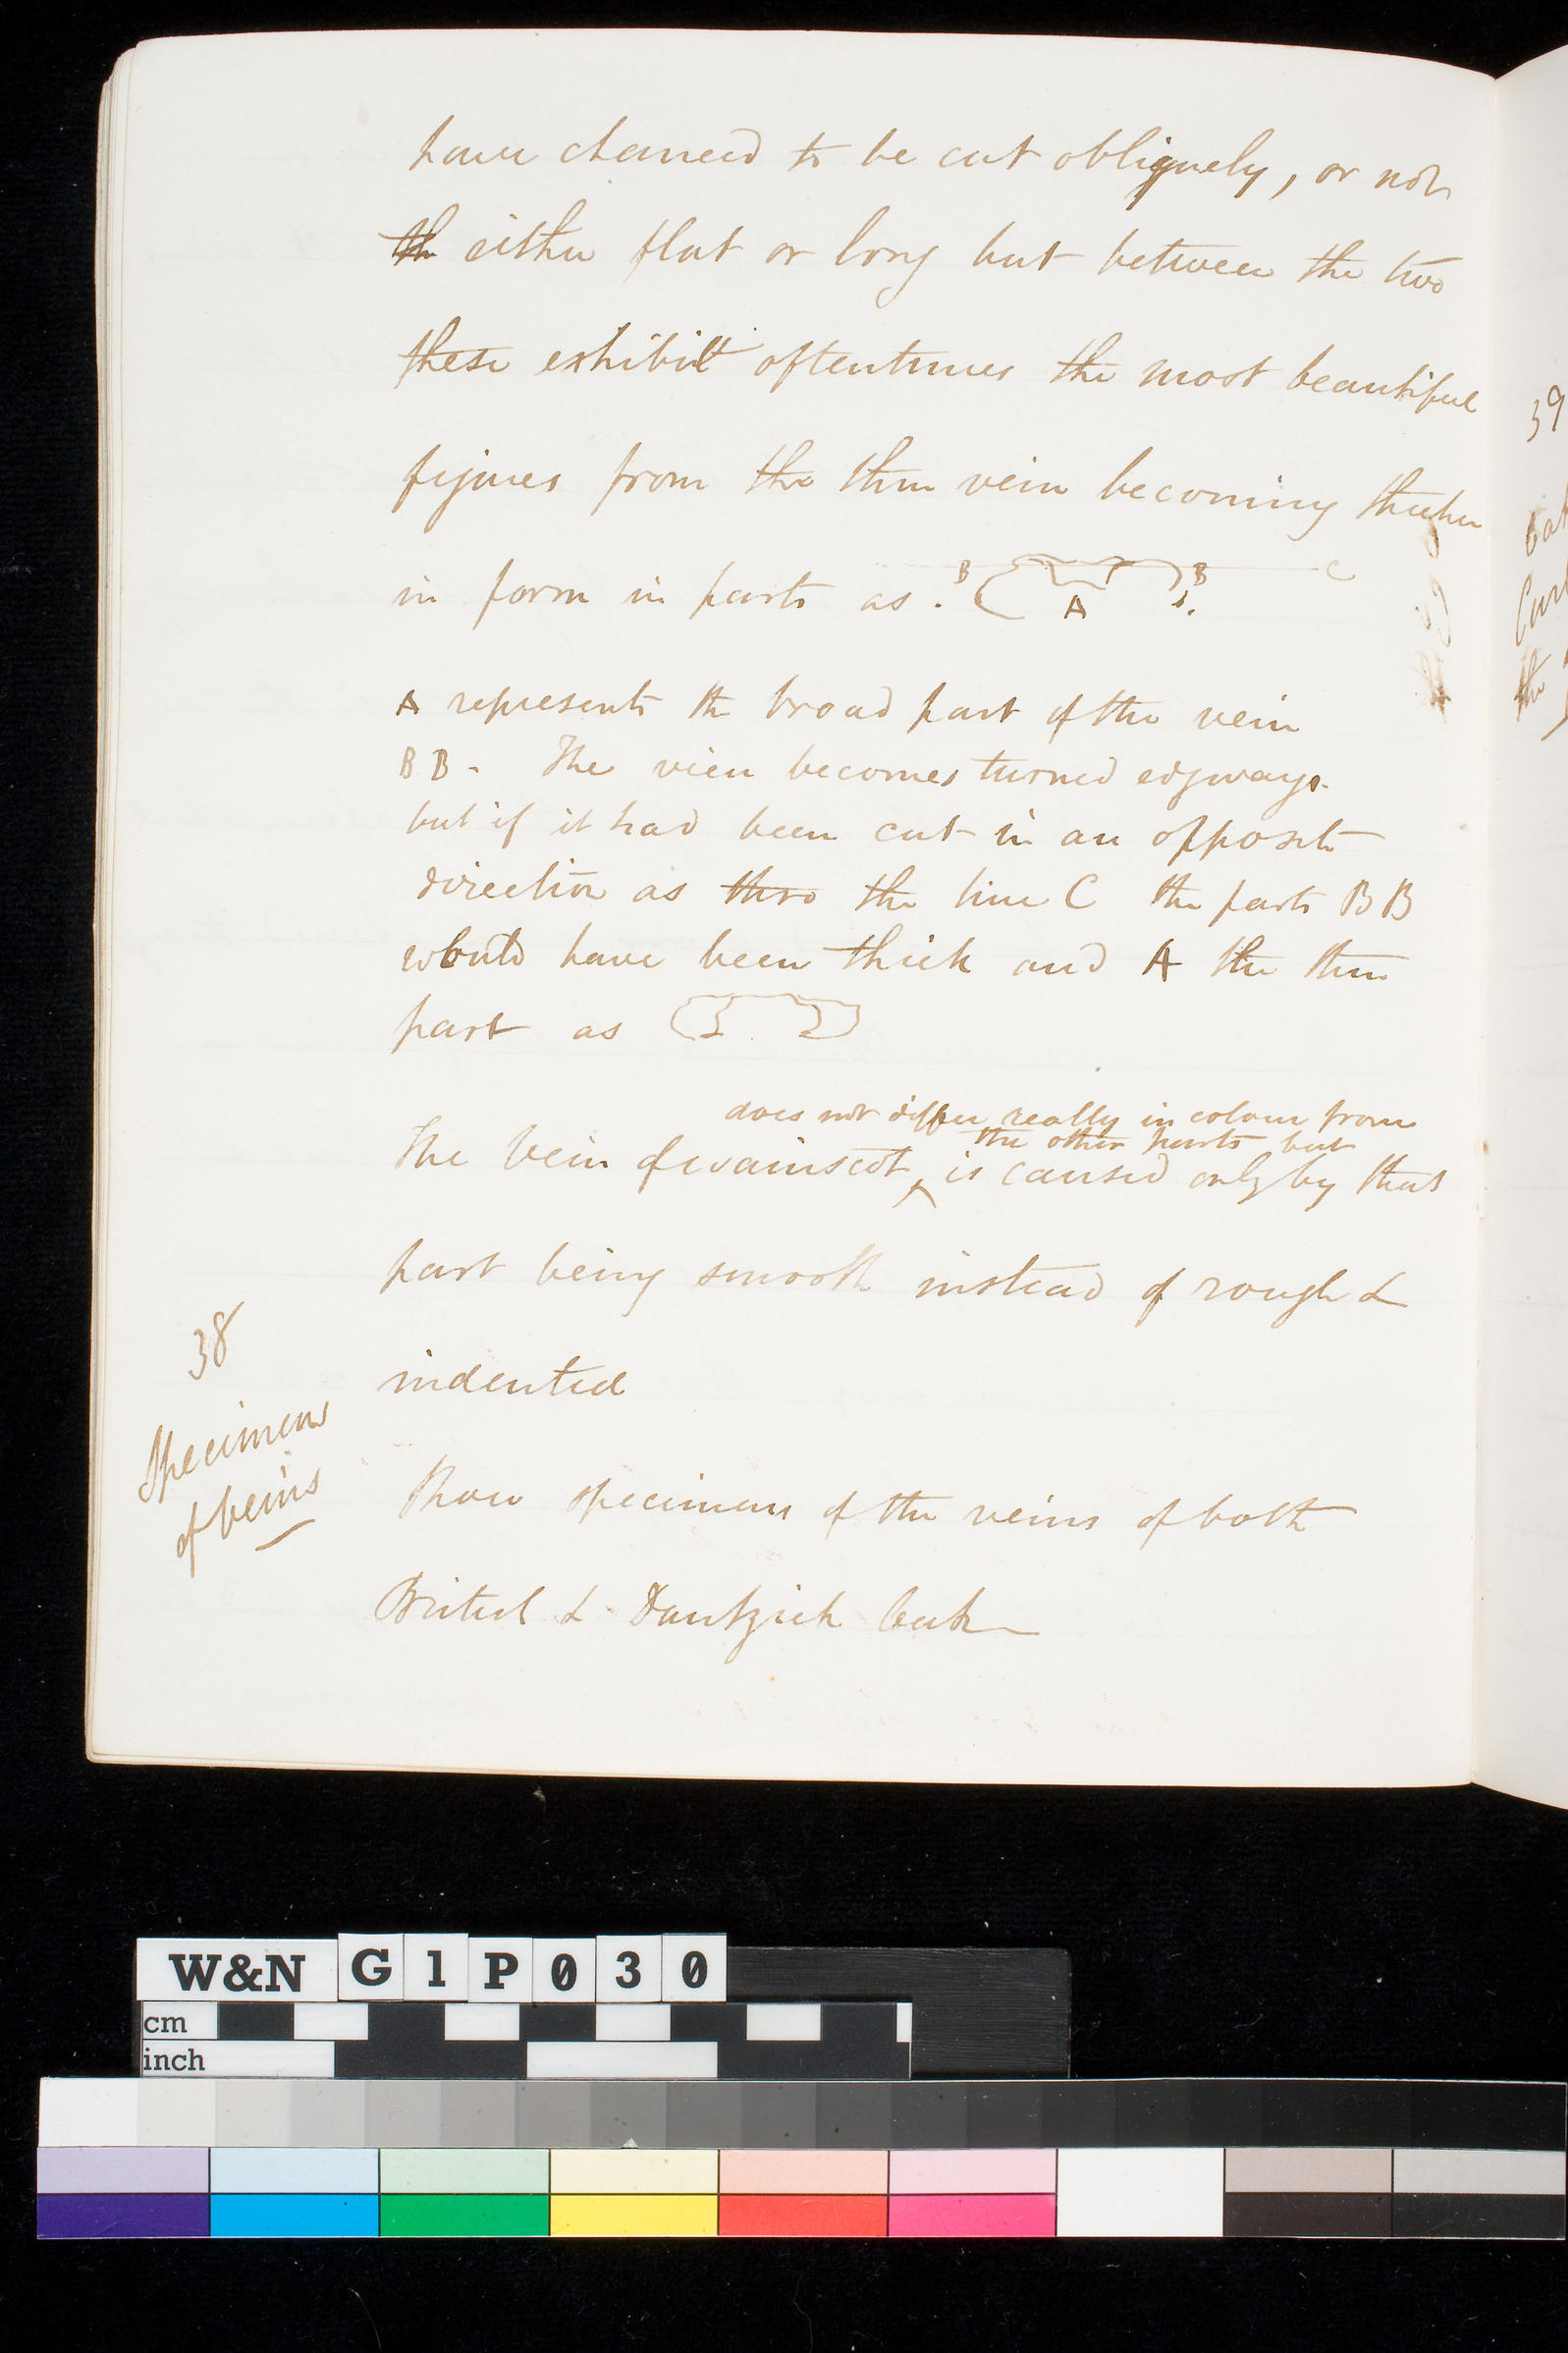 have chanced to be cut obliquely, or not
th either flat or long but between the two
these exhibit oftentimes the most beautiful
figures from the thin vein becoming thicker
in form in parts as . B A B C
A represents the broad part of the vein
BB - The vien becomes turned edgways.
but if it had been cut in an opposite
direction as thro the line C the parts BB
would have been thick and A the thin
part as
does not differ really in colour from
the other parts but
The vein of wainscot, is caused only by that
part being smooth instead of rough &
indented
38
Specimens
of veins
Show specimens of the veins of both
British & Dantzick Oak
39
the
W&N G1P030
cm
inch